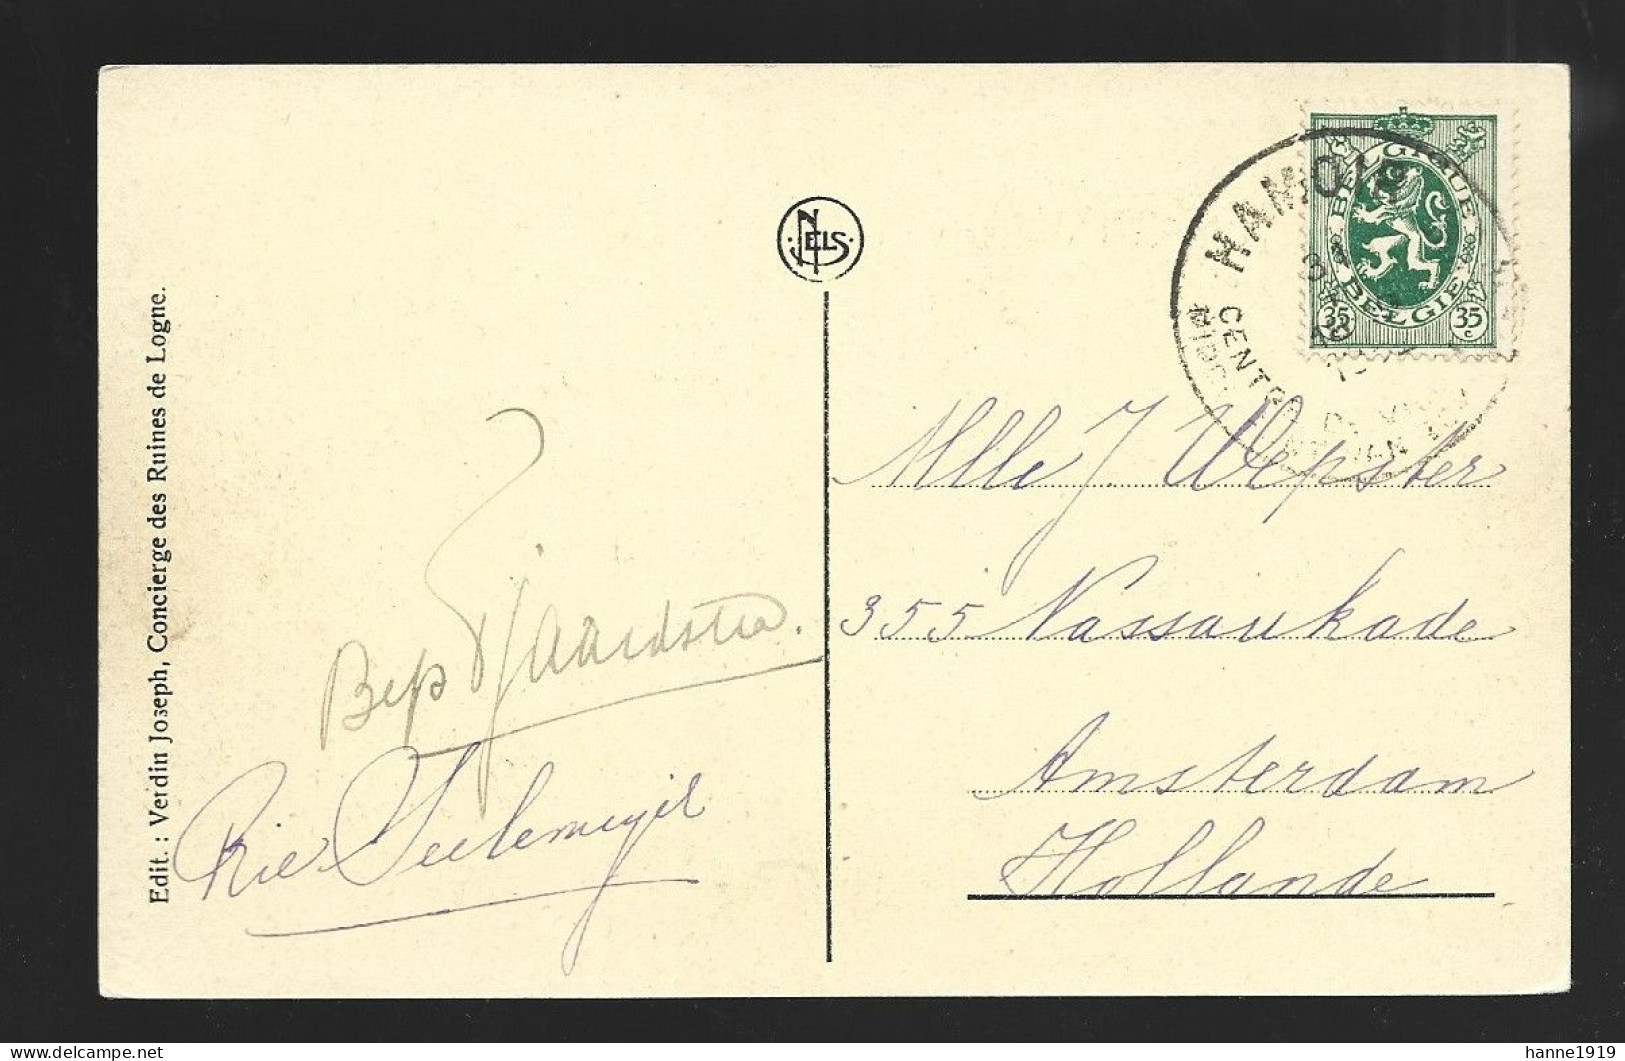 Edit. : Verdin Joseph, Concierge des Ruines de Logne.
NELS
Bep Tjaardstra.
Rie
HAMOIR
CENTR
BELGIQUE
BELGIE
35 c 35 c
Mlle J. Wepster
355 Nassaukade
Amsterdam
Hollande
delcampe.net
hanne1919